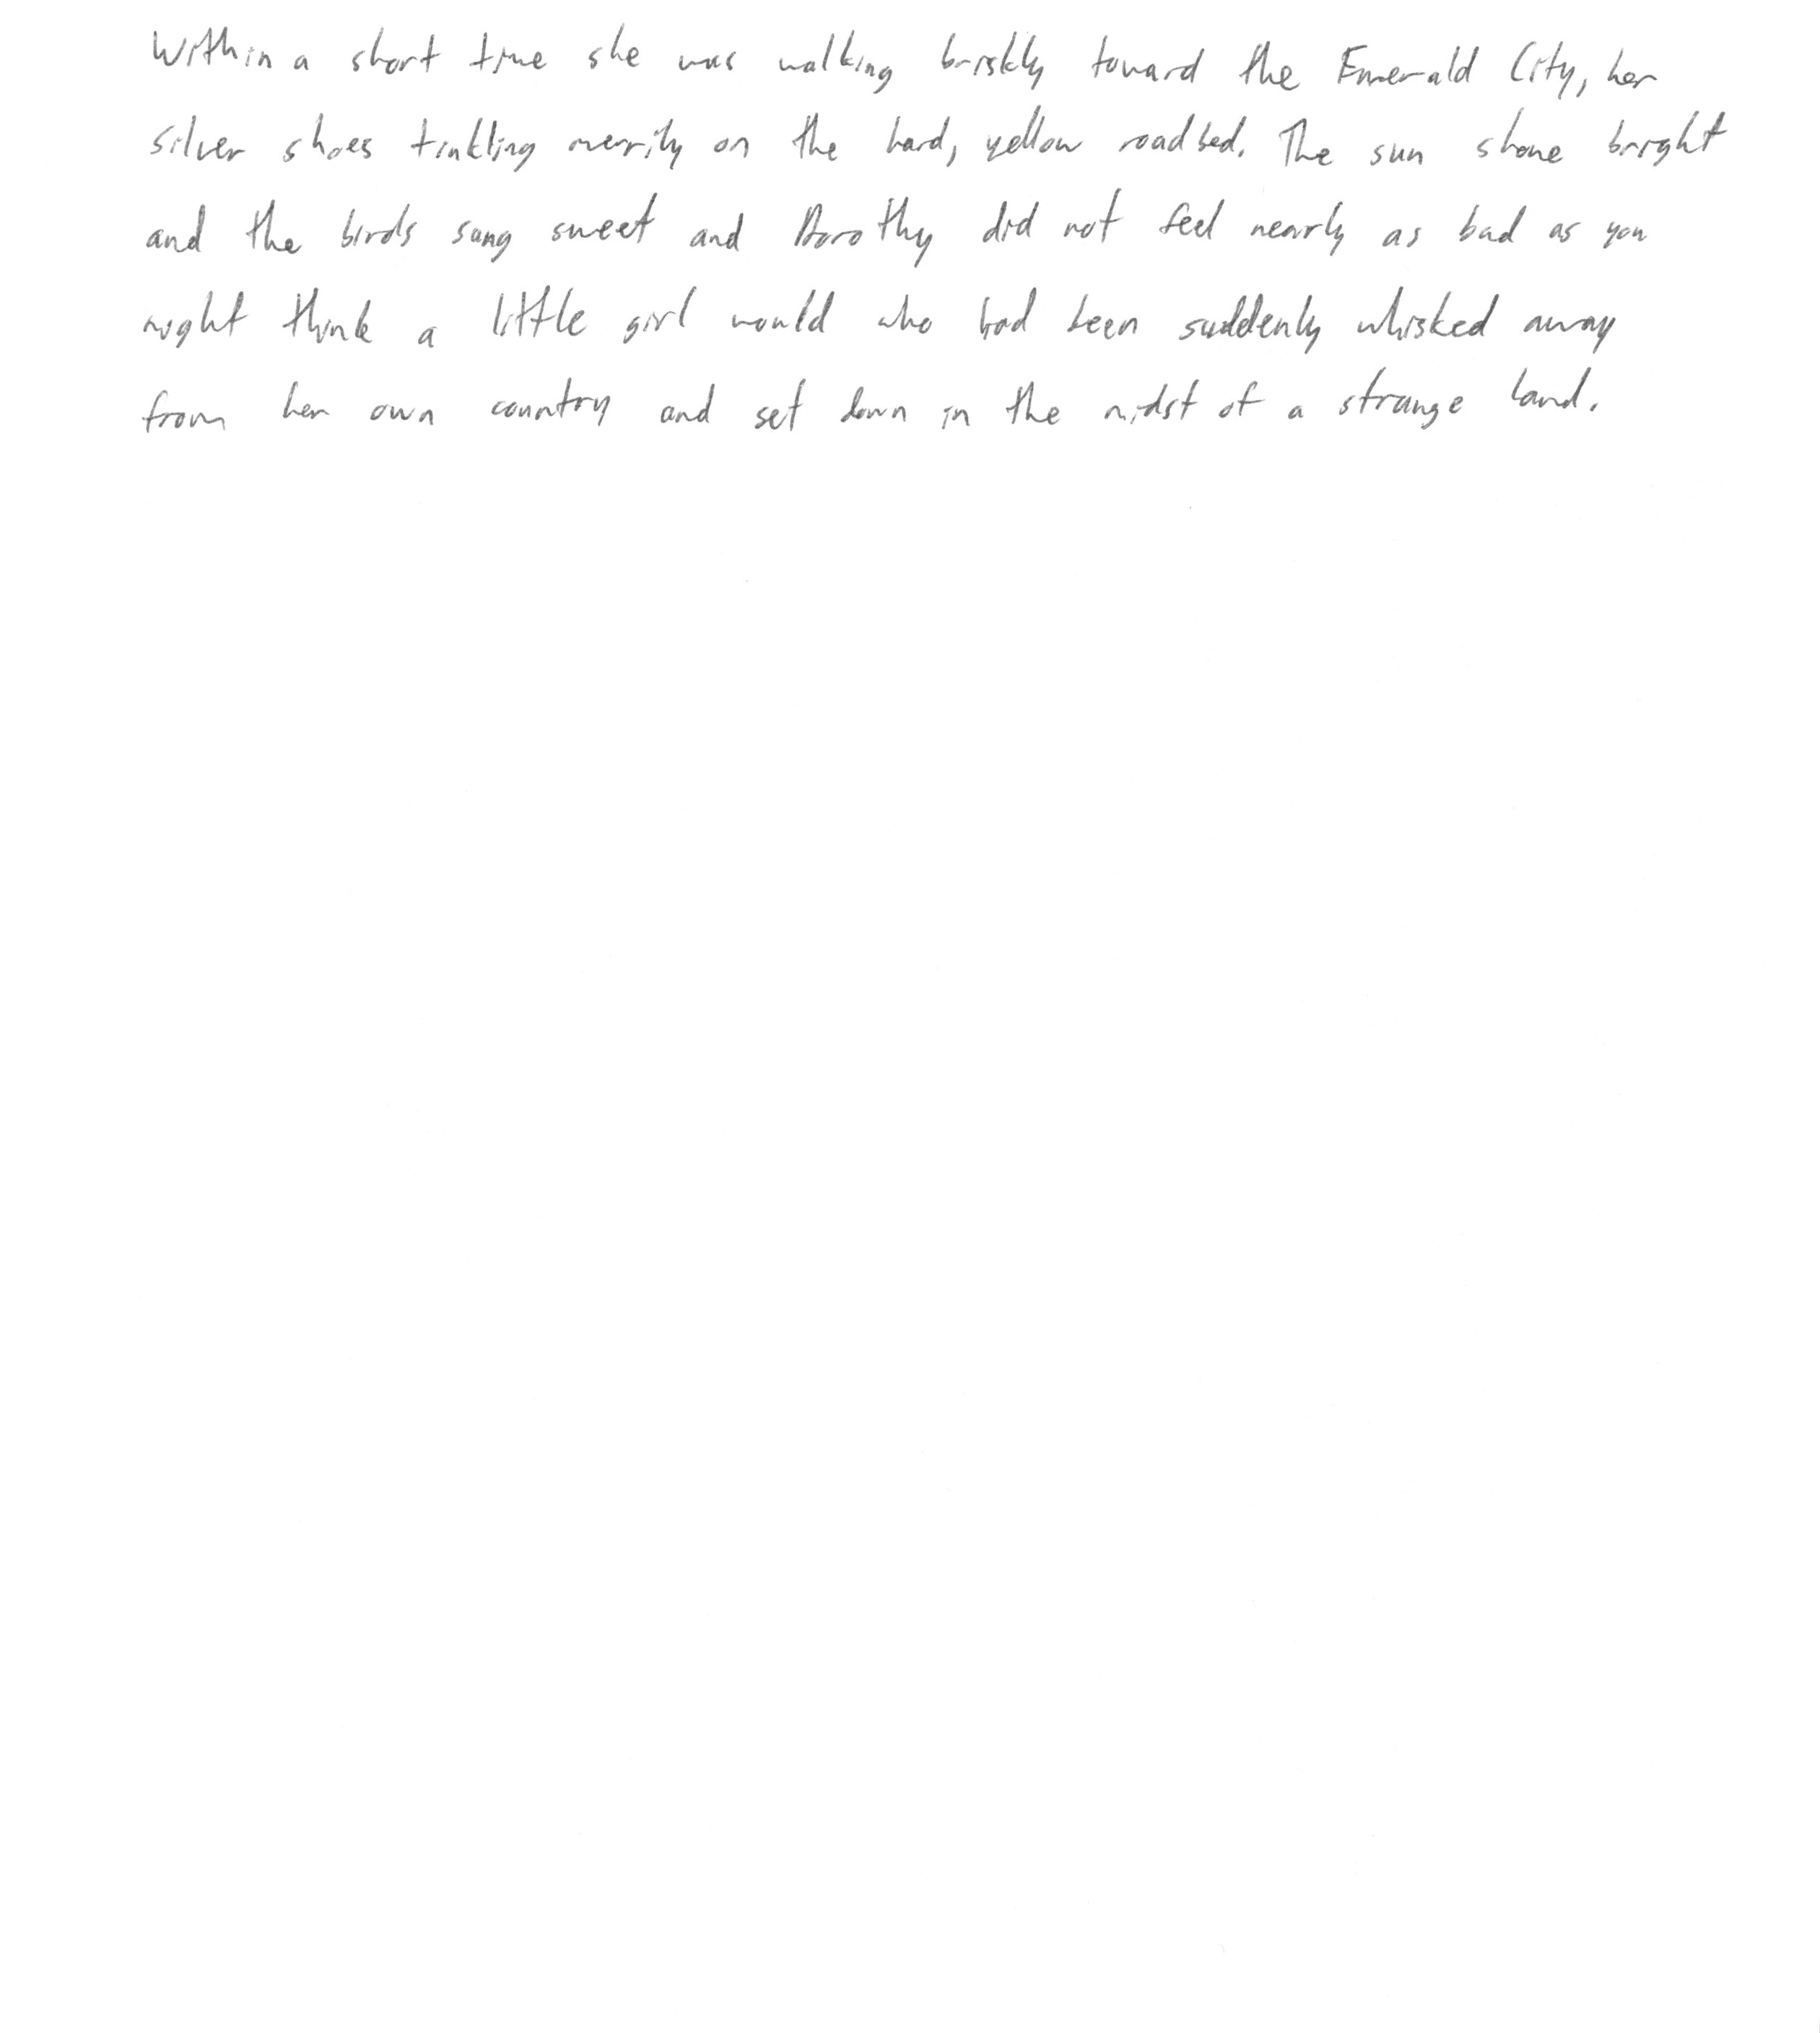 Within a short time she was walking briskly toward the Emerald City, her
silver shoes tinkling merrily on the hard, yellow roadbed. The sun shone bright
and the birds sang sweet and Dorothy did not feel nearly as bad as you
might think a little girl would who had been suddenly whisked away
from her own country and set down in the midst of a strange land.